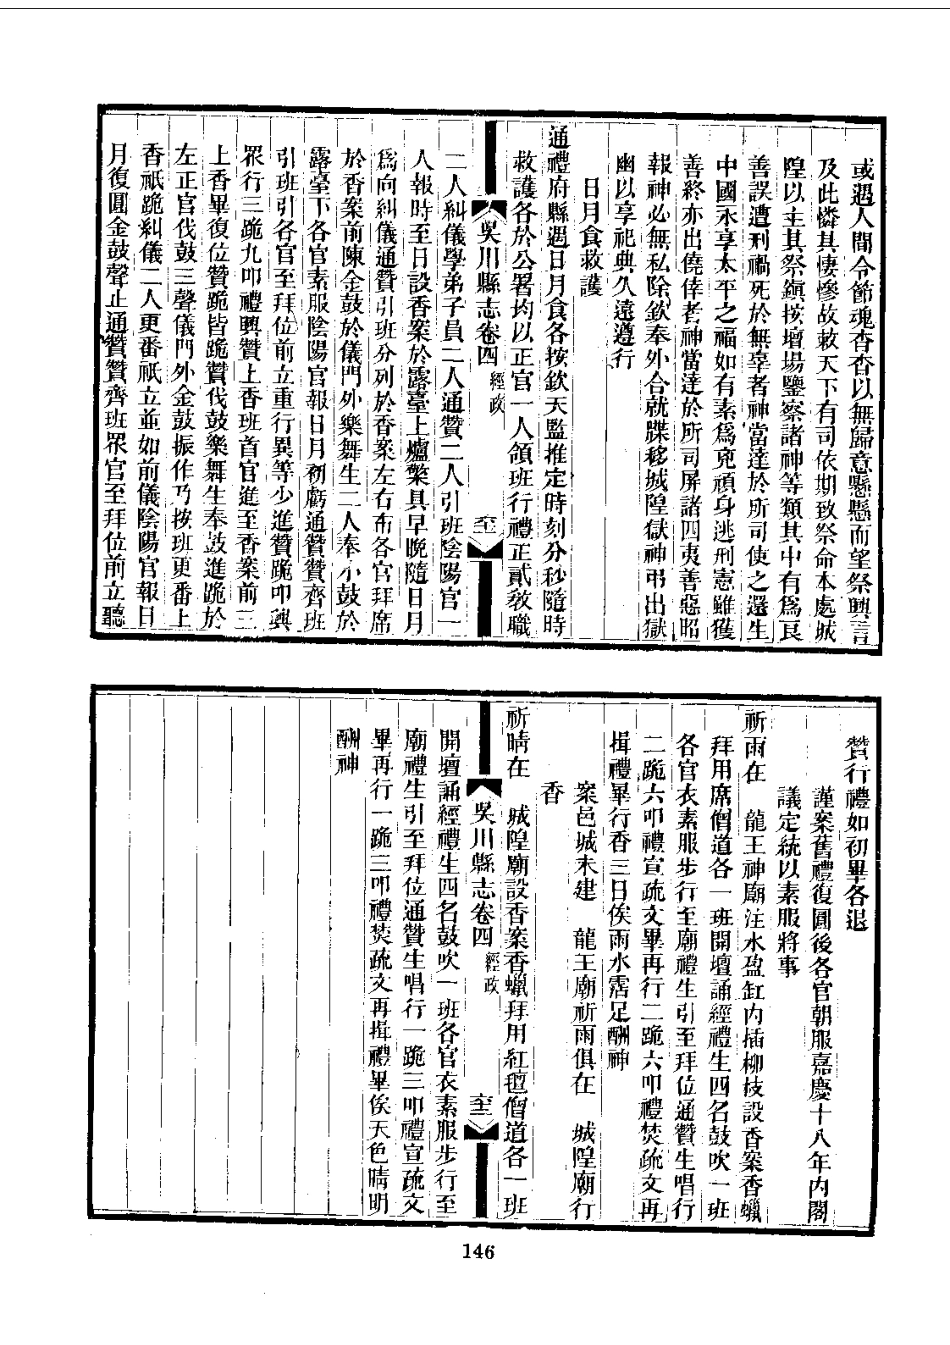 或遇人間令節魂杳杳以無歸意懸懸而望祭興言
及此憐其悽慘故敕天下有司依期致祭命本處城
隍以主其祭鎭按壇場鑒察諸神等類其中有爲良
善誤遭刑禍死於無辜者神當達於所司使之還生
中國永享太平之福如有素爲兇頑身逃刑憲雖獲
善終亦出僥倖者神當達於所司屏諸四夷善惡昭
報神必無私除欽奉外合就牒移城隍獄神弔出獄
幽以享祀典久遠遵行
日月食救護
通禮府縣遇日月食各按欽天監推定時刻分秒隨時
救護各於公署均以正官一人領班行禮正貳敎職
吳川縣志卷四 經政
二人糾儀學弟子員二人通贊二人引班陰陽官一
人報時至日設香案於露臺上爐檠具早晚隨日月
爲向糾儀通贊引班分列於香案左右布各官拜席
於香案前陳金鼓於儀門外樂舞生二人奉小鼓於
露臺下各官素服陰陽官報日月初虧通贊贊齊班
引班引各官至拜位前立重行異等少進贊跪叩興
眾行三跪九叩禮興贊上香班首官進至香案前三
上香畢復位贊跪皆跪贊伐鼓樂舞生奉鼓進跪於
左正官伐鼓三聲儀門外金鼓振作乃按班更番上
香祇跪糾儀二人更番祇立並如前儀陰陽官報日
月復圓金鼓聲止通贊贊齊班眾官至拜位前立聽
贊行禮如初畢各退
謹案舊禮復圓後各官朝服嘉慶十八年內閣
議定統以素服將事
祈雨在 龍王神廟注水盈缸內插柳枝設香案香蠟
拜用席僧道各一班開壇誦經禮生四名鼓吹一班
各官衣素服步行至廟禮生引至拜位通贊生唱行
二跪六叩禮宣疏文畢再行二跪六叩禮焚疏文再
揖禮畢行香三日俟雨水霑足酬神
案邑城未建 龍王廟祈雨俱在 城隍廟行
香
祈晴在 城隍廟設香案香蠟拜用紅氊僧道各一班
吳川縣志卷四 經政
開壇誦經禮生四名鼓吹一班各官衣素服步行至
廟禮生引至拜位通贊生唱行一跪三叩禮宣疏文
畢再行一跪三叩禮焚疏文再揖禮畢俟天色晴明
酬神
146